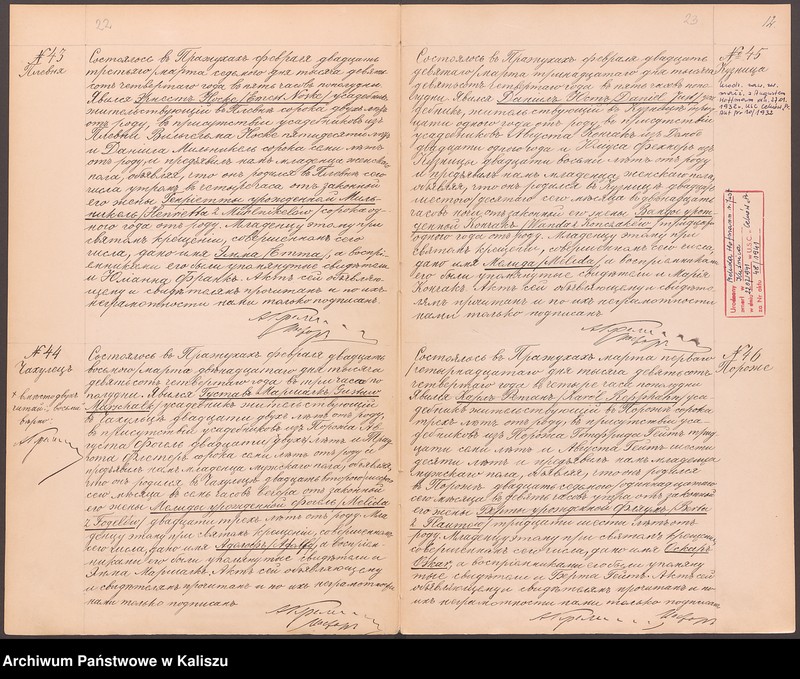 22
№ 43
Пловня
Состоялось въ Пражухахъ февраля двадцать
третьяго/марта седьмого дня тысяча девять
сотъ четвертаго года въ пять часовъ пополудни.
Явился Эрнестъ Носке/Ernest Noske/, усадебникъ
жительствующій въ Пловнѣ сорока двухъ лѣтъ
отъ роду, въ присутствіи усадебниковъ изъ
Пловни Вильгельма Носке пятидесяти
и Даніила Мильникель сорока семи лѣтъ
отъ роду, и предъявилъ намъ младенца женскаго
пола, объявляя, что онъ родился въ Пловнѣ сего
числа утромъ въ четыре часа отъ законной
его жены Генрietты урожденной Миль-
никель/Henrietta z Milnikelów/ сорока од-
ного года отъ роду. Младенцу этому при
святомъ крещеніи, совершенномъ сего
числа, дано имя Эмма/Emma/, а воспрі-
емниками его были упомянутые свидѣтели
и Юліанна Франкъ. Актъ сей объявляю-
щему и свидѣтелямъ прочитанъ и по ихъ не-
грамотности нами только подписанъ.
№ 44
Чахулецъ
Состоялось въ Пражухахъ февраля двадцать
восьмого/марта двѣнадцатаго дня тысяча
девятьсотъ четвертаго года въ три часа по-
полудни. Явился Густавъ Маршалъ/Gustaw
Marschall/ усадебникъ жительствующій
въ Чахульцѣ двадцати двухъ лѣтъ отъ роду,
въ присутствіи усадебниковъ изъ Порожа Ав-
густа Фогель двадцати двухъ лѣтъ и
сорока семи лѣтъ отъ роду и
предъявилъ намъ младенца мужскаго пола, объявляя,
что онъ родился въ Чахульцѣ двадцать
сего мѣсяца въ семь часовъ вечера отъ законной
его жены Мелиды урожденной Фогель/Melida
z Fogelów/ двадцати трехъ лѣтъ отъ роду. Мла-
денцу этому при святомъ крещеніи, совершенномъ
сего числа, дано имя Адольфъ/Adolf/, а воспріем-
никами его были упомянутые свидѣтели и
Анна Маршалъ. Актъ сей объявляющему
и свидѣтелямъ прочитанъ и по ихъ неграмотности
нами только подписанъ
23
12
№ 45
Кузница
Состоялось въ Пражухахъ февраля двадцать
девятаго/марта тринадцатаго дня тысяча
девятьсотъ четвертаго года въ пять часовъ попо-
лудни. Явился Даніилъ Юстъ/Daniel Just/ уса-
дебникъ, жительствующій въ Кузницѣ трид-
цати одного года отъ роду, въ присутствіи
усадебниковъ Августа Консакъ изъ
двадцати одного года и
Кузницы двадцати восьми лѣтъ отъ роду
и предъявилъ намъ младенца женскаго пола,
объявляя, что онъ родился въ Кузницѣ двадцать
шестого/десятаго сего мѣсяца въ двѣнадцать
часовъ ночи отъ законной его жены Ванды урож-
денной Консакъ/Wanda z Konsaków/ тридцати
одного года отъ роду. Младенцу этому при
святомъ крещеніи, совершенномъ сего числа,
дано имя Мелида/Melida/, а воспріемниками
его были упомянутые свидѣтели и Марія
Консакъ. Актъ сей объявляющему и свидѣте-
лямъ прочитанъ и по ихъ неграмотности
нами только подписанъ
№ 46
Пороже
Состоялось въ Пражухахъ марта перваго
/четырнадцатаго дня тысяча девятьсотъ
четвертаго года въ четыре часа пополудни
Явился Карлъ Кепханъ/Karol Kepphahn/ уса-
дебникъ жительствующій въ Порожѣ сорока
трехъ лѣтъ отъ роду, въ присутствіи уса-
дебниковъ изъ Порожа Готфрида Гейтъ трид-
цати семи лѣтъ и Августа Гейтъ шести-
десяти лѣтъ и предъявилъ намъ младенца
мужскаго пола, объявляя, что онъ родился
въ Порожѣ двадцать седьмого/одиннадцатаго
сего мѣсяца въ девять часовъ утра отъ законной
его жены Берты урожденной
тридцати шести лѣтъ отъ
роду. Младенцу этому при святомъ крещеніи,
совершенномъ сего числа, дано имя Оскаръ
/Oskar/, а воспріемниками его были упомяну-
тые свидѣтели и Берта Гейтъ. Актъ сей
объявляющему и свидѣтелямъ прочитанъ и по
ихъ неграмотности нами только подписанъ
Archiwum Państwowe w Kaliszu